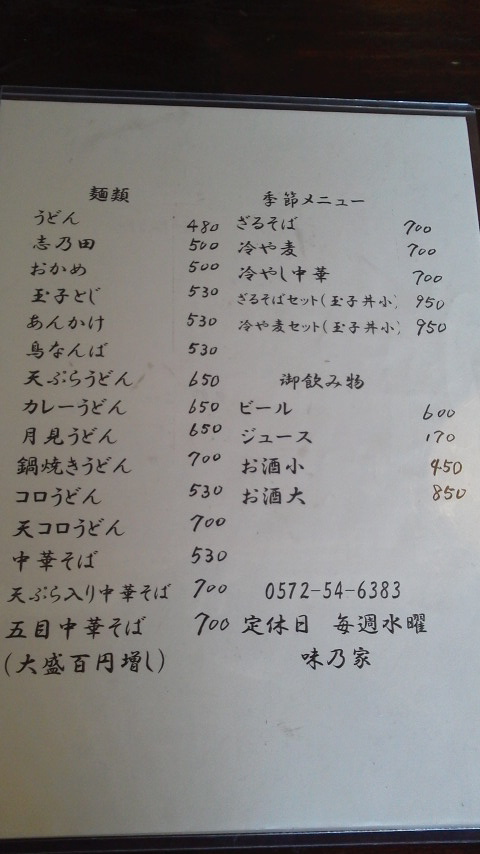 麺類
うどん 480
志乃田 500
おかめ 500
玉子とじ 530
あんかけ 530
鳥なんば 530
天ぷらうどん 650
カレーうどん 650
月見うどん 650
鍋焼きうどん 700
コロうどん 530
天コロうどん 700
中華そば 530
天ぷら入り中華そば 700
五目中華そば 700
(大盛百円増し)
季節メニュー
ざるそば 700
冷や麦 700
冷やし中華 700
ざるそばセット(玉子丼小) 950
冷や麦セット(玉子丼小) 950
御飲み物
ビール 600
ジュース 170
お酒小 450
お酒大 850
0572-54-6383
定休日 毎週水曜
味乃家